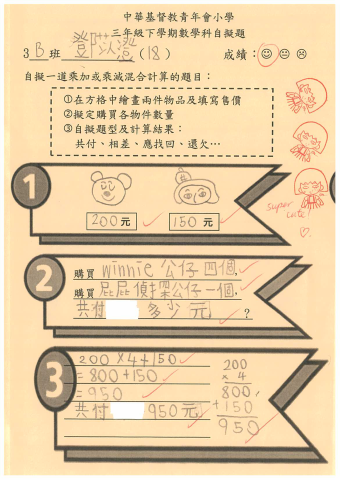 中華基督教青年會小學
三年級下學期數學科自擬題
3 B 班 鄧苡澄 (18) 成績：
自擬一道乘加或乘減混合計算的題目：
①在方格中繪畫兩件物品及填寫售價
②擬定購買各物件數量
③自擬題型及計算結果：
共付、相差、應找回、還欠…
1
200元 150元
super cute!
2
購買 winnie 公仔四個,
購買 屁屁偵探公仔一個,
共付 多少元 ?
3
200×4+150
=800+150
=950
共付 950元
200
× 4
800
+150
950